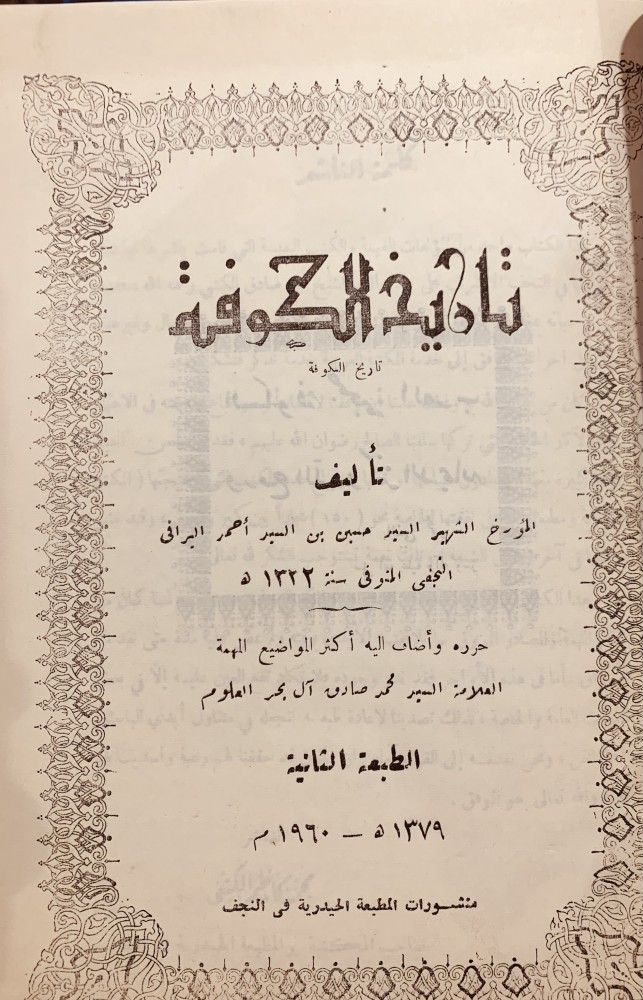 تاريخ الكوفة
تاريخ الكوفة
تأليف
المؤرخ الشهير السيد حسين بن السيد أحمد البراقي
النجفي المتوفى سنة ١٣٣٢ ھ
حرره وأضاف اليه أكثر المواضيع المهمة
العلامة السيد محمد صادق آل بحر العلوم
الطبعة الثانية
١٣٧٩ ھ — ١٩٦٠ م
منشورات المطبعة الحيدرية في النجف